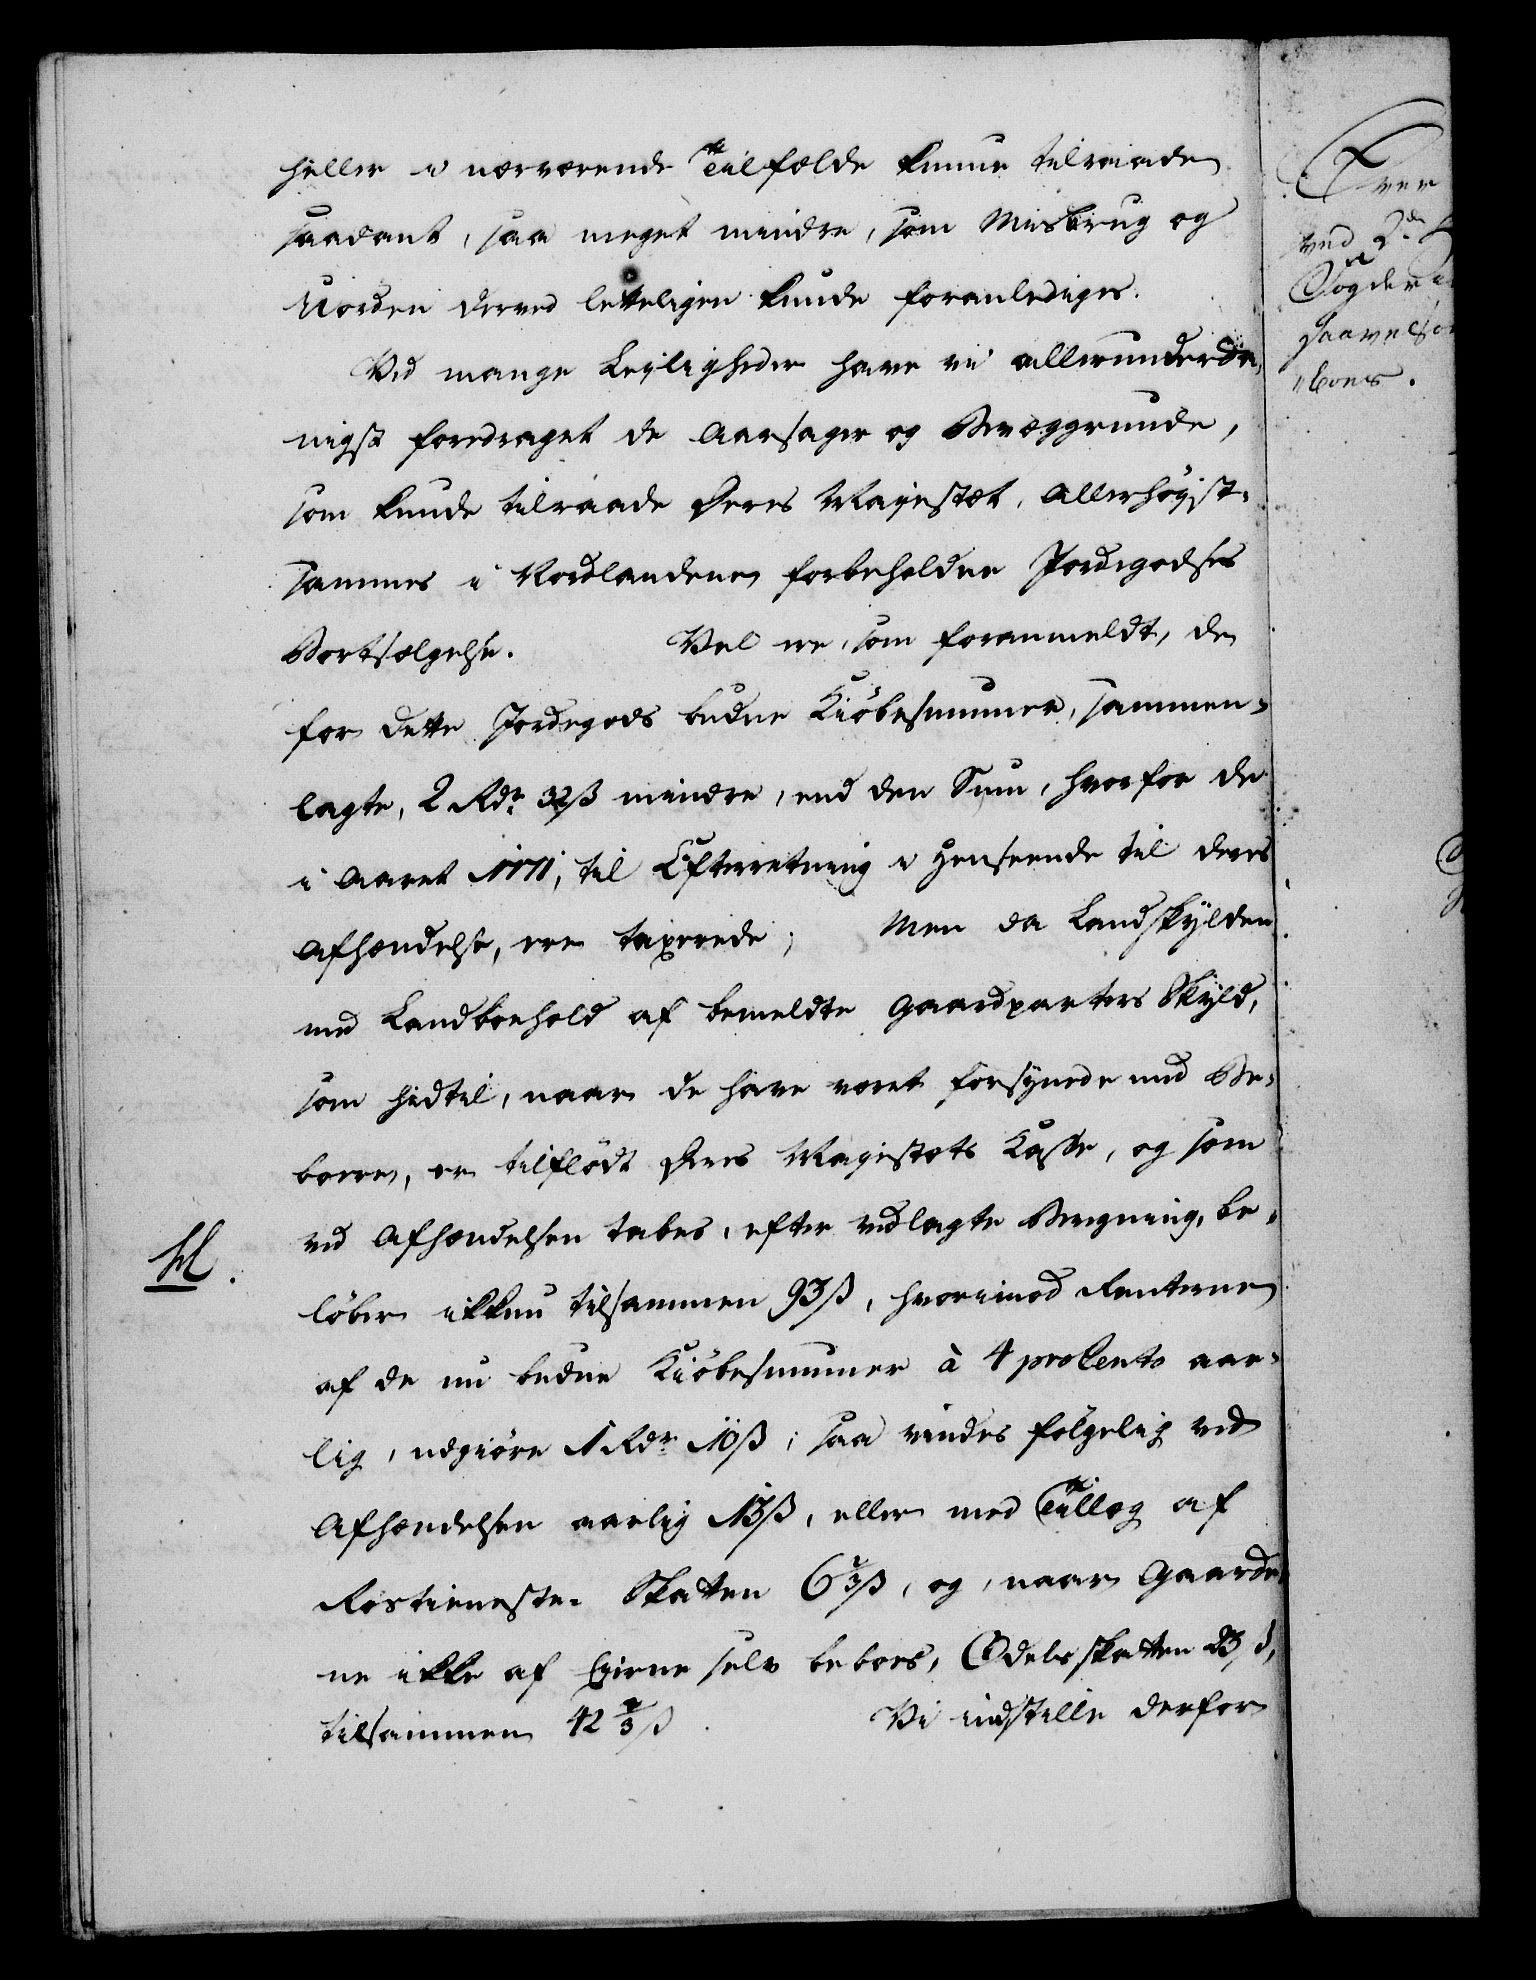 heller i nærværende Tilfælde kunne tilraade
saadant, saa meget mindre, som Misbrug og
Uorden derved letteligen kunde foranlediges.
Ved mange Leyligheder have vi allerunderdæ¬
nigst foredraget de Aarsager og Bevæggrunde,
som kunde tilraade Deres Majestæt, Allerhøyst¬
sammes i Nordlandene forbeholdne Jordegodses
Bortsælgelse. Vel ere, som foranmeldt, de
for dette Jordegods budne Kiöbesummer, sammen¬
lagte, 2 Rdr 32 ß mindre, end den Sum, hvorfor de
i Aaret 1771, til Efterretning i Henseende til deres
Afhændelse, ere taxerede; Men da Landskylden
med Landboehold af bemeldte Gaardparters Skyld,
som hidtil, naar de have været forsynede med Be¬
boere, er tilflödt Deres Majestæts Kasse, og som
ved Afhændelsen tabes, efter vedlagte Beregning, be¬
H.
löber ikkun tilsammen 93 ß, hvorimod Renterne
af de nu budne Kiöbesummer à 4 proCento aar¬
lig, udgiöre 1 Rdr 10 ß; saa vindes fölgelig ved
Afhændelsen aarlig 13 ß, eller med Tillæg af
Rostieneste-Skatten 6 2/3 ß, og, naar Gaarde
ne ikke af Eierne selv beboes, Odelsskatten 23 ß,
tilsammen 42 2/3 ß. Vi indstille derfor
ved 2de